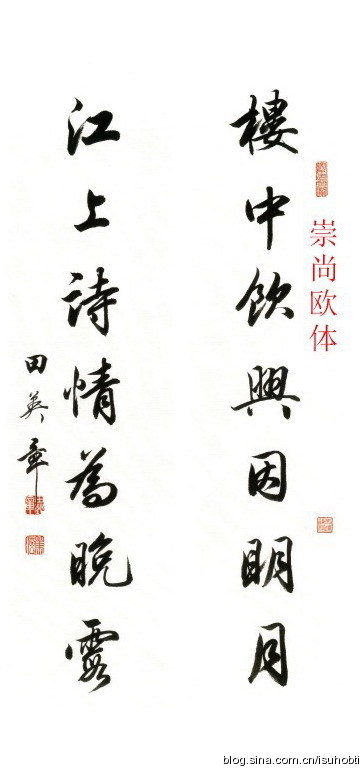 崇尚欧体
樓中飲興因明月
江上詩情為晚霞
田英章
blog.sina.com.cn/isuhobti